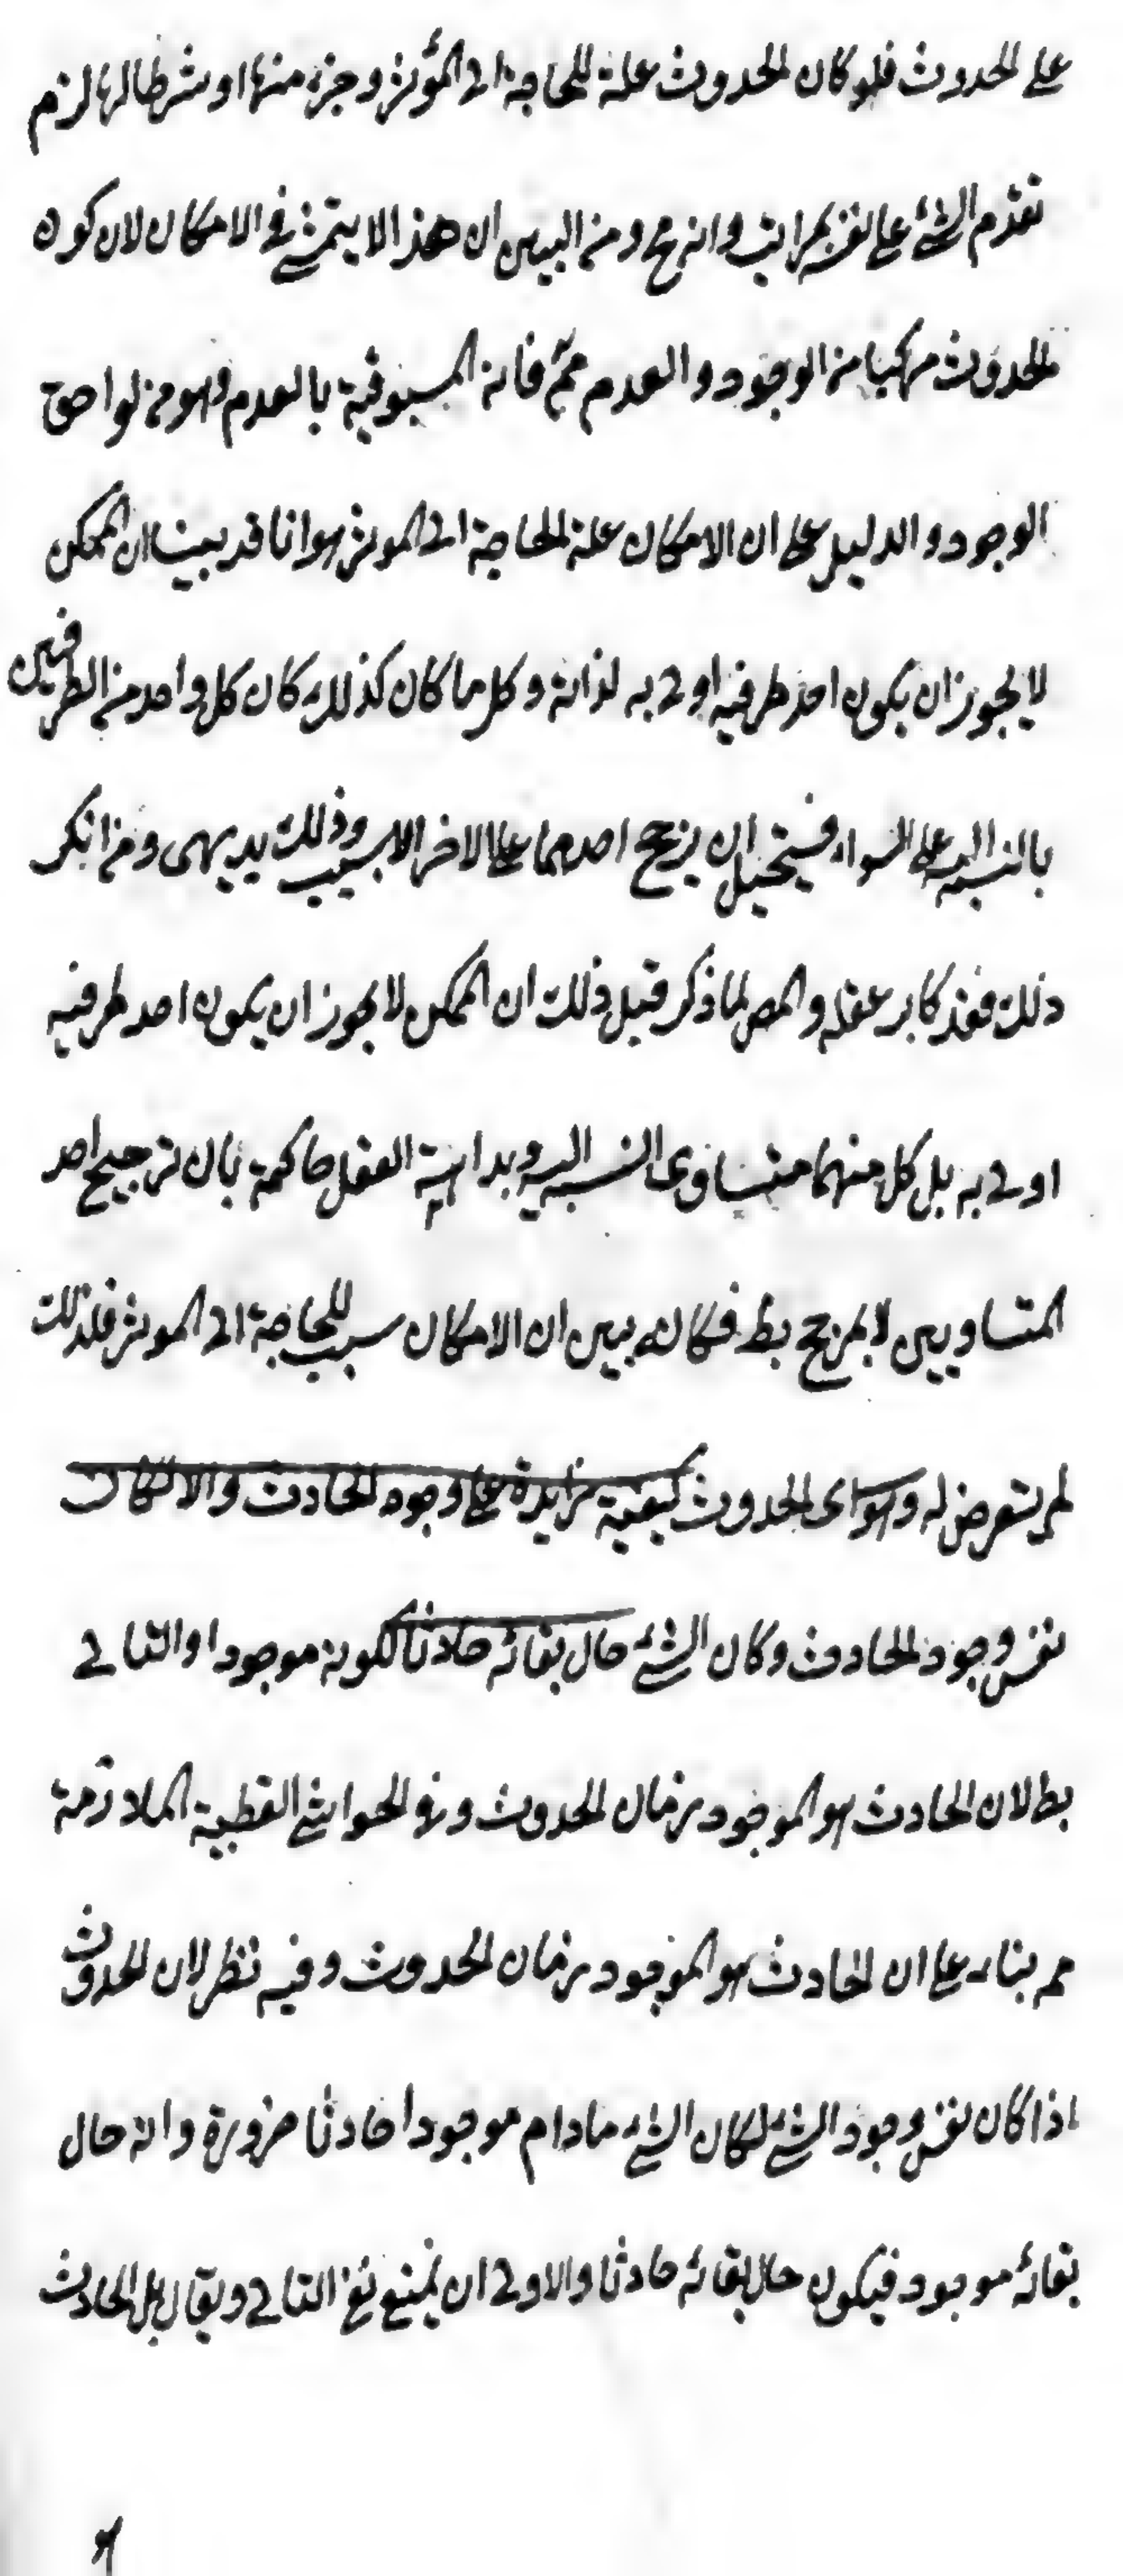 على الحدوث فلو كان الحدوث علة للحاجة الى المؤثر و جزء منها او شرطا لها لزم
تقدم الشئ على نفسه بمراتب وانه مح ومن البين ان هذا لا يتمشى فى الامكان لان كون
الحدوث مركبا من الوجود والعدم مم فانه المسبوقية بالعدم وهو من لواحق
الوجود والدليل على ان الامكان علة الحاجة الى الموثر هو انا قد بينا ان الممكن
لا يجوز ان يكون احد طرفيه اولى به لذاته وكل ما كان كذلك كان كل واحد من الطرفين
بالنسبة اليه على السواء فيستحيل ان يرجح احدهما على الاخر الا بسبب وذلك بديهى ومن انكر
ذلك فقد كابر عقله والمص لما ذكر قبل ذلك ان الممكن لا يجوز ان يكون احد طرفيه
اولى به بل كل منهما متساوى النسبة اليه وبداهية العقل حاكمة بان ترجيح احد
المتساويين لا بمرجح بط فكانه بين ان الامكان سبب للحاجة الى الموثر فلذلك
لم يتعرض له وهو اى الحدوث كيفية زايدة على وجود الحادث والا لكان
نفس وجود الحادث وكان الشئ حال بقائه حادثا لكونه موجودا والتالى
بط لان الحادث هو الموجود زمان الحدوث وفى الحواشى القطبية الملازمة
مم بناء على ان الحادث هو الموجود زمان الحدوث وفيه نظر لان الحدوث
اذا كان نفس وجود الشئ لكان الشئ مادام موجودا حادثا ضرورة وانه حال
بقائه موجود فيكون حال بقائه حادثا والاولى ان يمنع نفى التالى ويقال بل الحادث